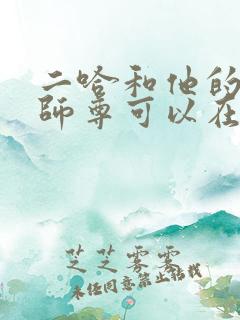 二哈和他的
師尊可以在
芝芝雾雾
未经同意禁止转载